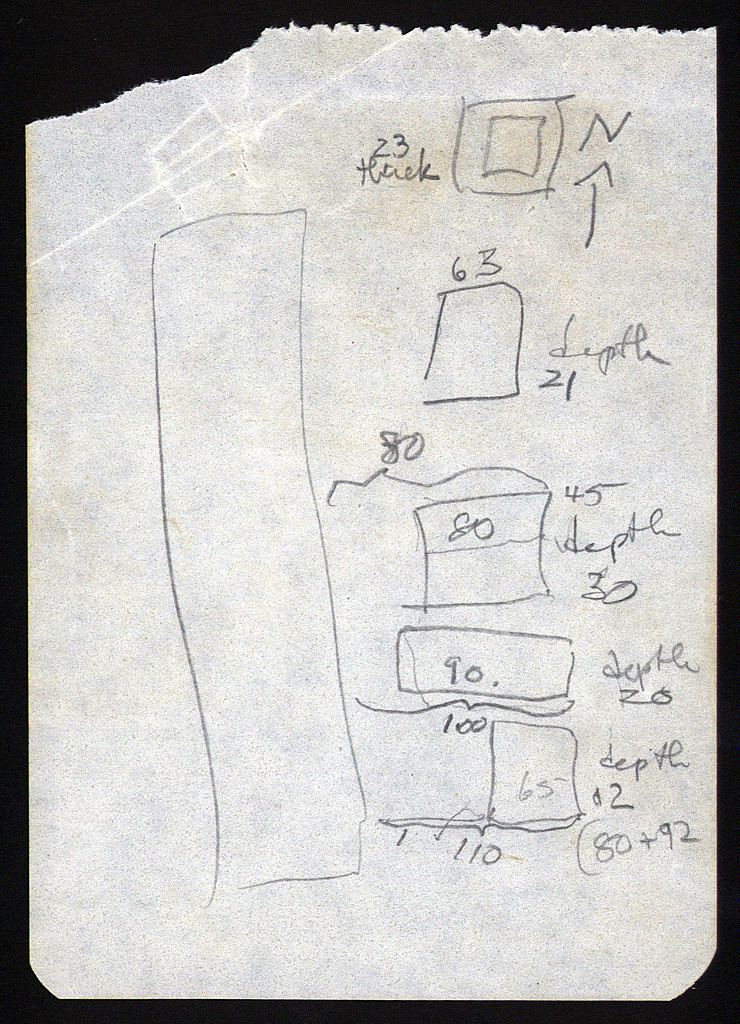 23
thick
N
63
depth
21
80
45
80
depth
30
90.
depth
20
100
65
depth
12
1
110
(80+92